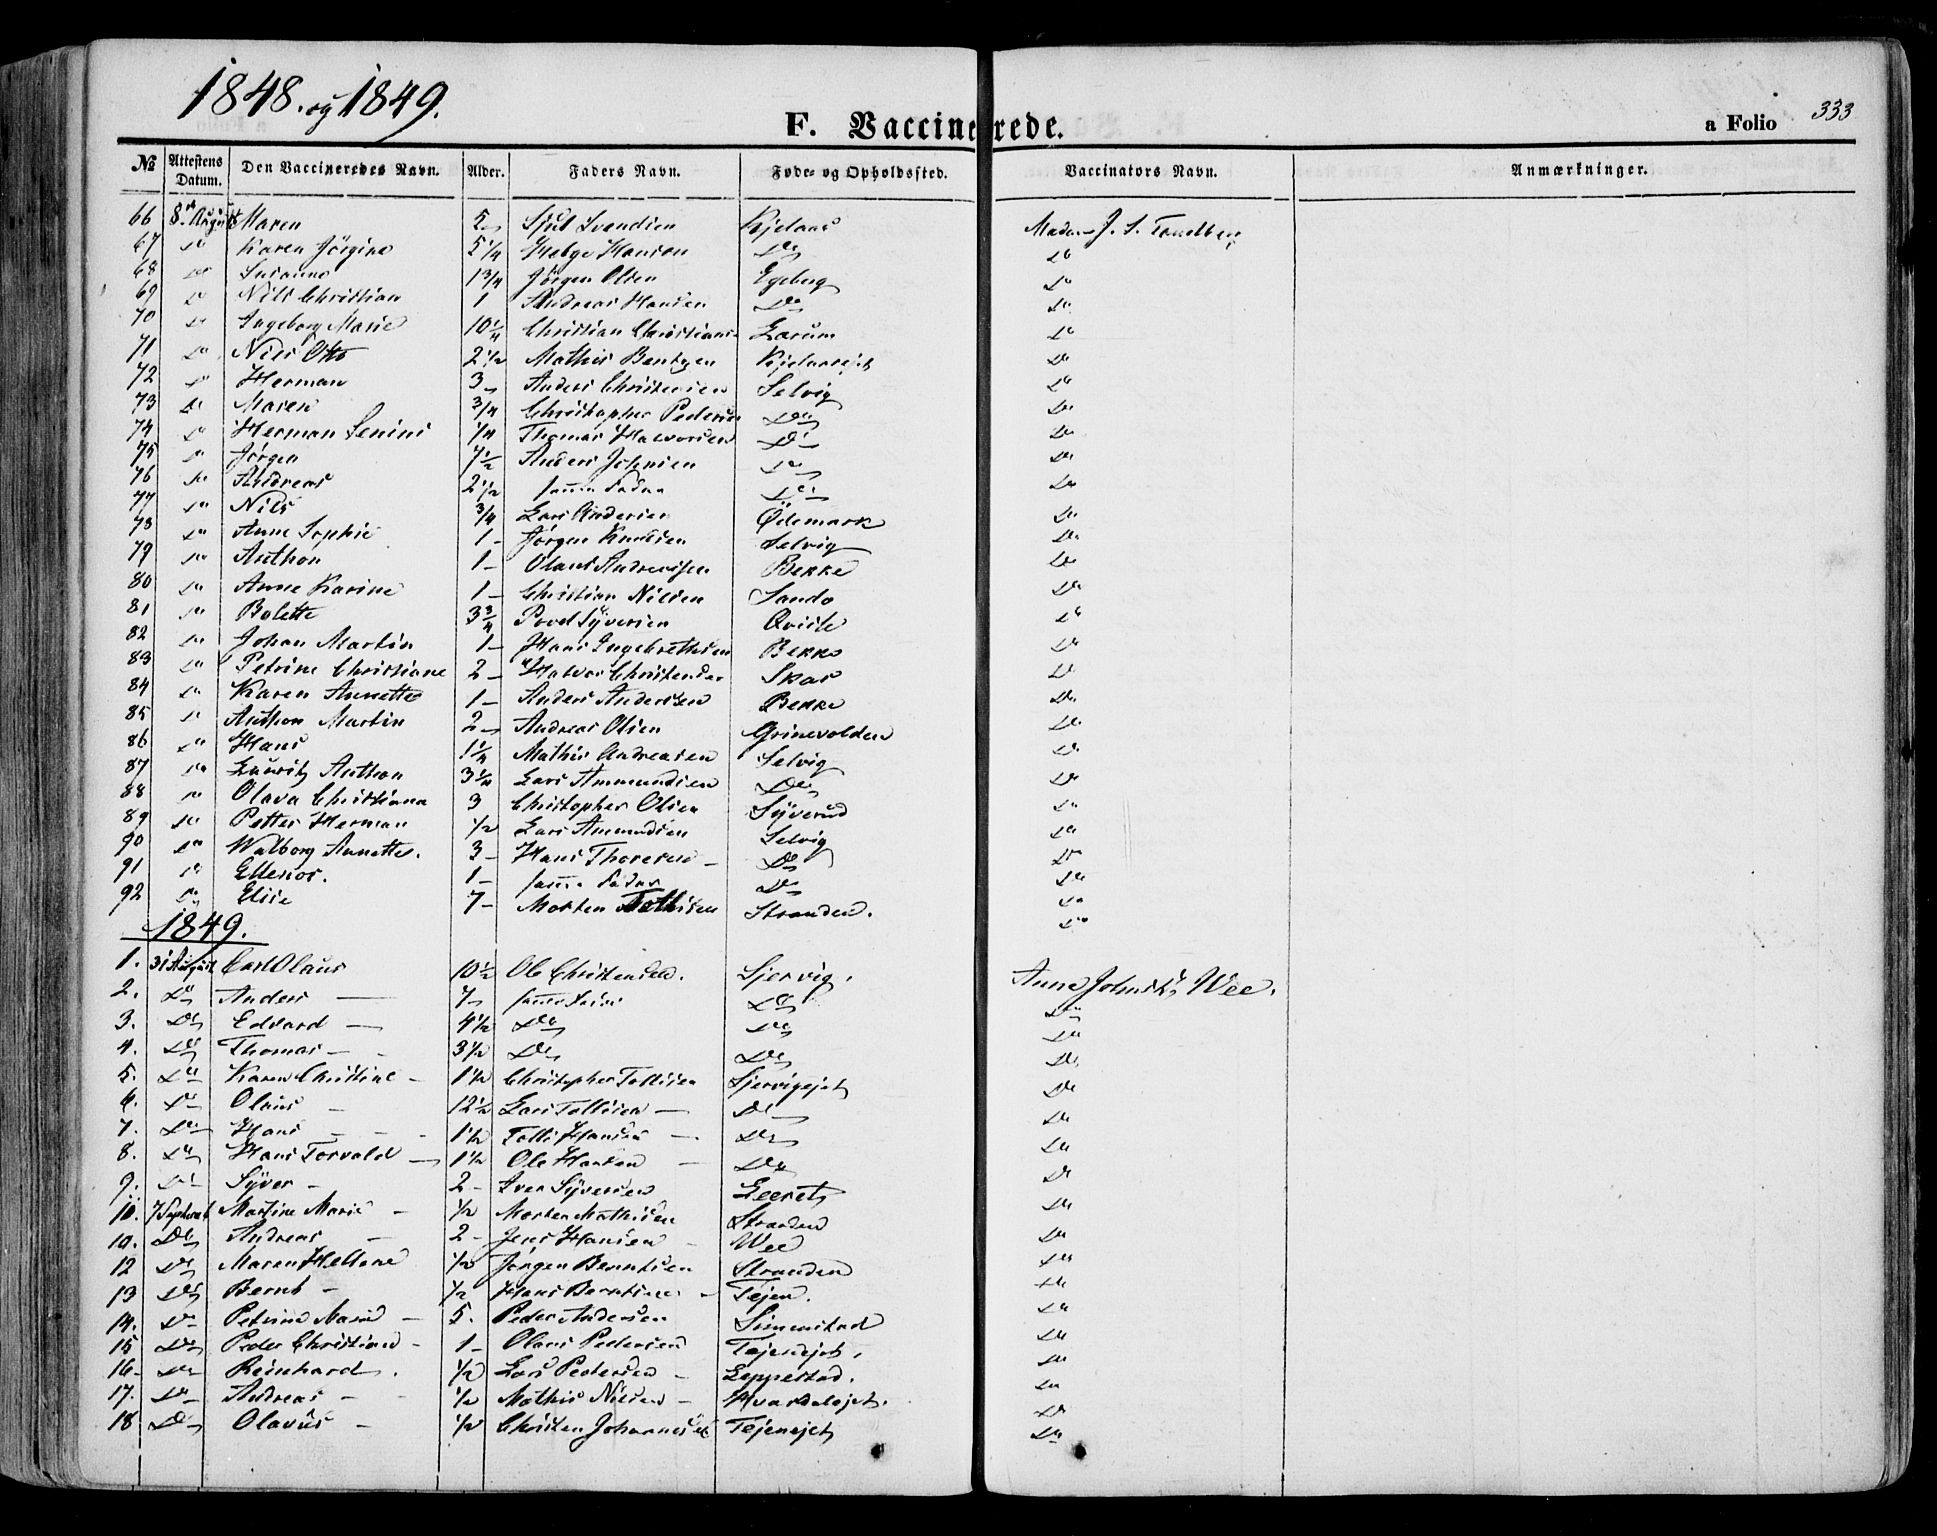 1848. og 1849.
F. Vaccinerede.
a Folio 333
№ Attestens Datum. Den Vaccineredes Navn. Alder. Faders Navn. Føde- og Opholdssted. Vaccinators Navn. Anmærkninger.
66 8 August Maren 2 Svendsen Madm J. S.
67 Do Karen Jörgine 5 1/4 Helge Hansen Do Do
68 Do Susanne 1 3/4 Jörgen Olsen Egeberg Do
69 Do Nils Christian 1 Andreas Hansen Do Do
70 Do Ingeborg Marie 10 1/4 Christian Christians Do
71 Do Nils Otto 2 1/2 Mathis Bentzen Do
72 Do Herman 3 Anders Christensen Selvig Do
73 Do Maren 3/4 Christopher Pedersen Do Do
74 Do Herman 1/4 Thomas Halvorsen Do Do
75 Do Jörgen 7 1/2 Anders Johnsen Do Do
76 Do Andreas 2 1/2 samme Fader Do Do
77 Do Nils 3/4 Lars Andersen Ödemark Do
78 Do Anne Sophie 1 - Jörgen Knudsen Selvig Do
79 Do Anthon 1 - Olaus Andreassen Bekke Do
80 Do Anne Karine 1 - Christian Nilsen Sando Do
81 Do Bolette 3 3/4 Povel Syversen Do
82 Do Johan Martin 1 - Hans Ingebrethsen Bekke Do
83 Do Petrine Christiane 2 - Halvor Christensen Skar Do
84 Do Karen Annette 1 - Anders Andersen Bekke Do
85 Do Anthon Martin 2 - Andreas Olsen Grinevolden Do
86 Do Hans 1 1/4 Mathis Andreasen Selvig Do
87 Do Lauritz Anthon 3 1/4 Lars Ammundsen Do Do
88 Do Olava Christiana 3 Christopher Olsen Syverud Do
89 Do Petter Herman 1/2 Lars Amundsen Selvig Do
90 Do Walborg Annette. 3 - Hans Thoresen - Do Do
91 Do Ellenor. 1 - samme Fader Do Do
92 Do Elise 7 - Morten Stranden. Do
1849.
1. 31 August Carl Olaus 10 1/2 Ole Christensen. Sjervig. Anne Wee.
2. Do Anders 7 - samme Do Do
3. Do Edvard 4 1/2 Do Do Do
4. Do Thomas - 3 1/2 Do Do Do
5. Do Karen Christine - 1 1/2 Christopher Tollisen Sjervigejet Do
6. Do Olaus - 12 1/2 Lars Tollisen - Do Do
7. Do Hans - 1 1/2 Tolli Hansen - Do Do
8. Do Hans Torvald - 1 1/2 Ole Hansen - Do Do
9. Do Syver - 2 - Iver Syversen Do
10. 7 Septemb Martine Marie - 1/2 Morten Mathisen Stranden Do
10. Do Andreas - 2 - Jens Hansen - Wee Do
12 Do Maren Hellene 1/2 Jörgen Berntsen Stranden Do
13 Do Bernt - 1/2 Hans Berntsen - Tejen. Do
14. Do Petrine Marie - 5. Peder Andersen Do
15 Do Peder Christian - 1 - Olaus Pedersen Tejenejet. Do
16. Do Reinhard. 1/2 Lars Pedersen - Leppestad. Do
17. Do Andreas - 1/2 Mathis Nilsen - Do
18 Do Olavus - 1/2 Christen Johannesen Tejenejet Do